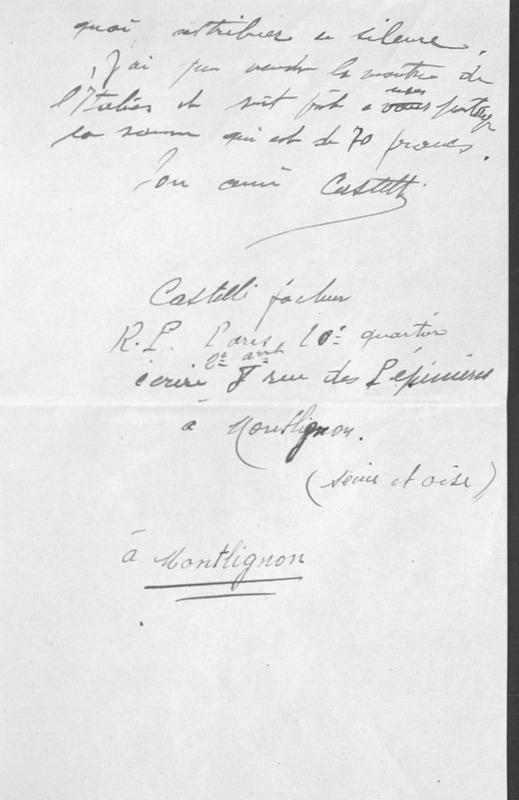 quoi attribuer ce silence.
J'ai pu vendre la montre de
l'Italien et suis prêt à vous
la somme qui est de 70 francs.
Ton ami Castelli
Castelli facteur
R.P. Paris 10e quartier
2e arrt
écrire 8 rue des Pépinières
à Montlignon.
(Seine et oise)
à Montlignon